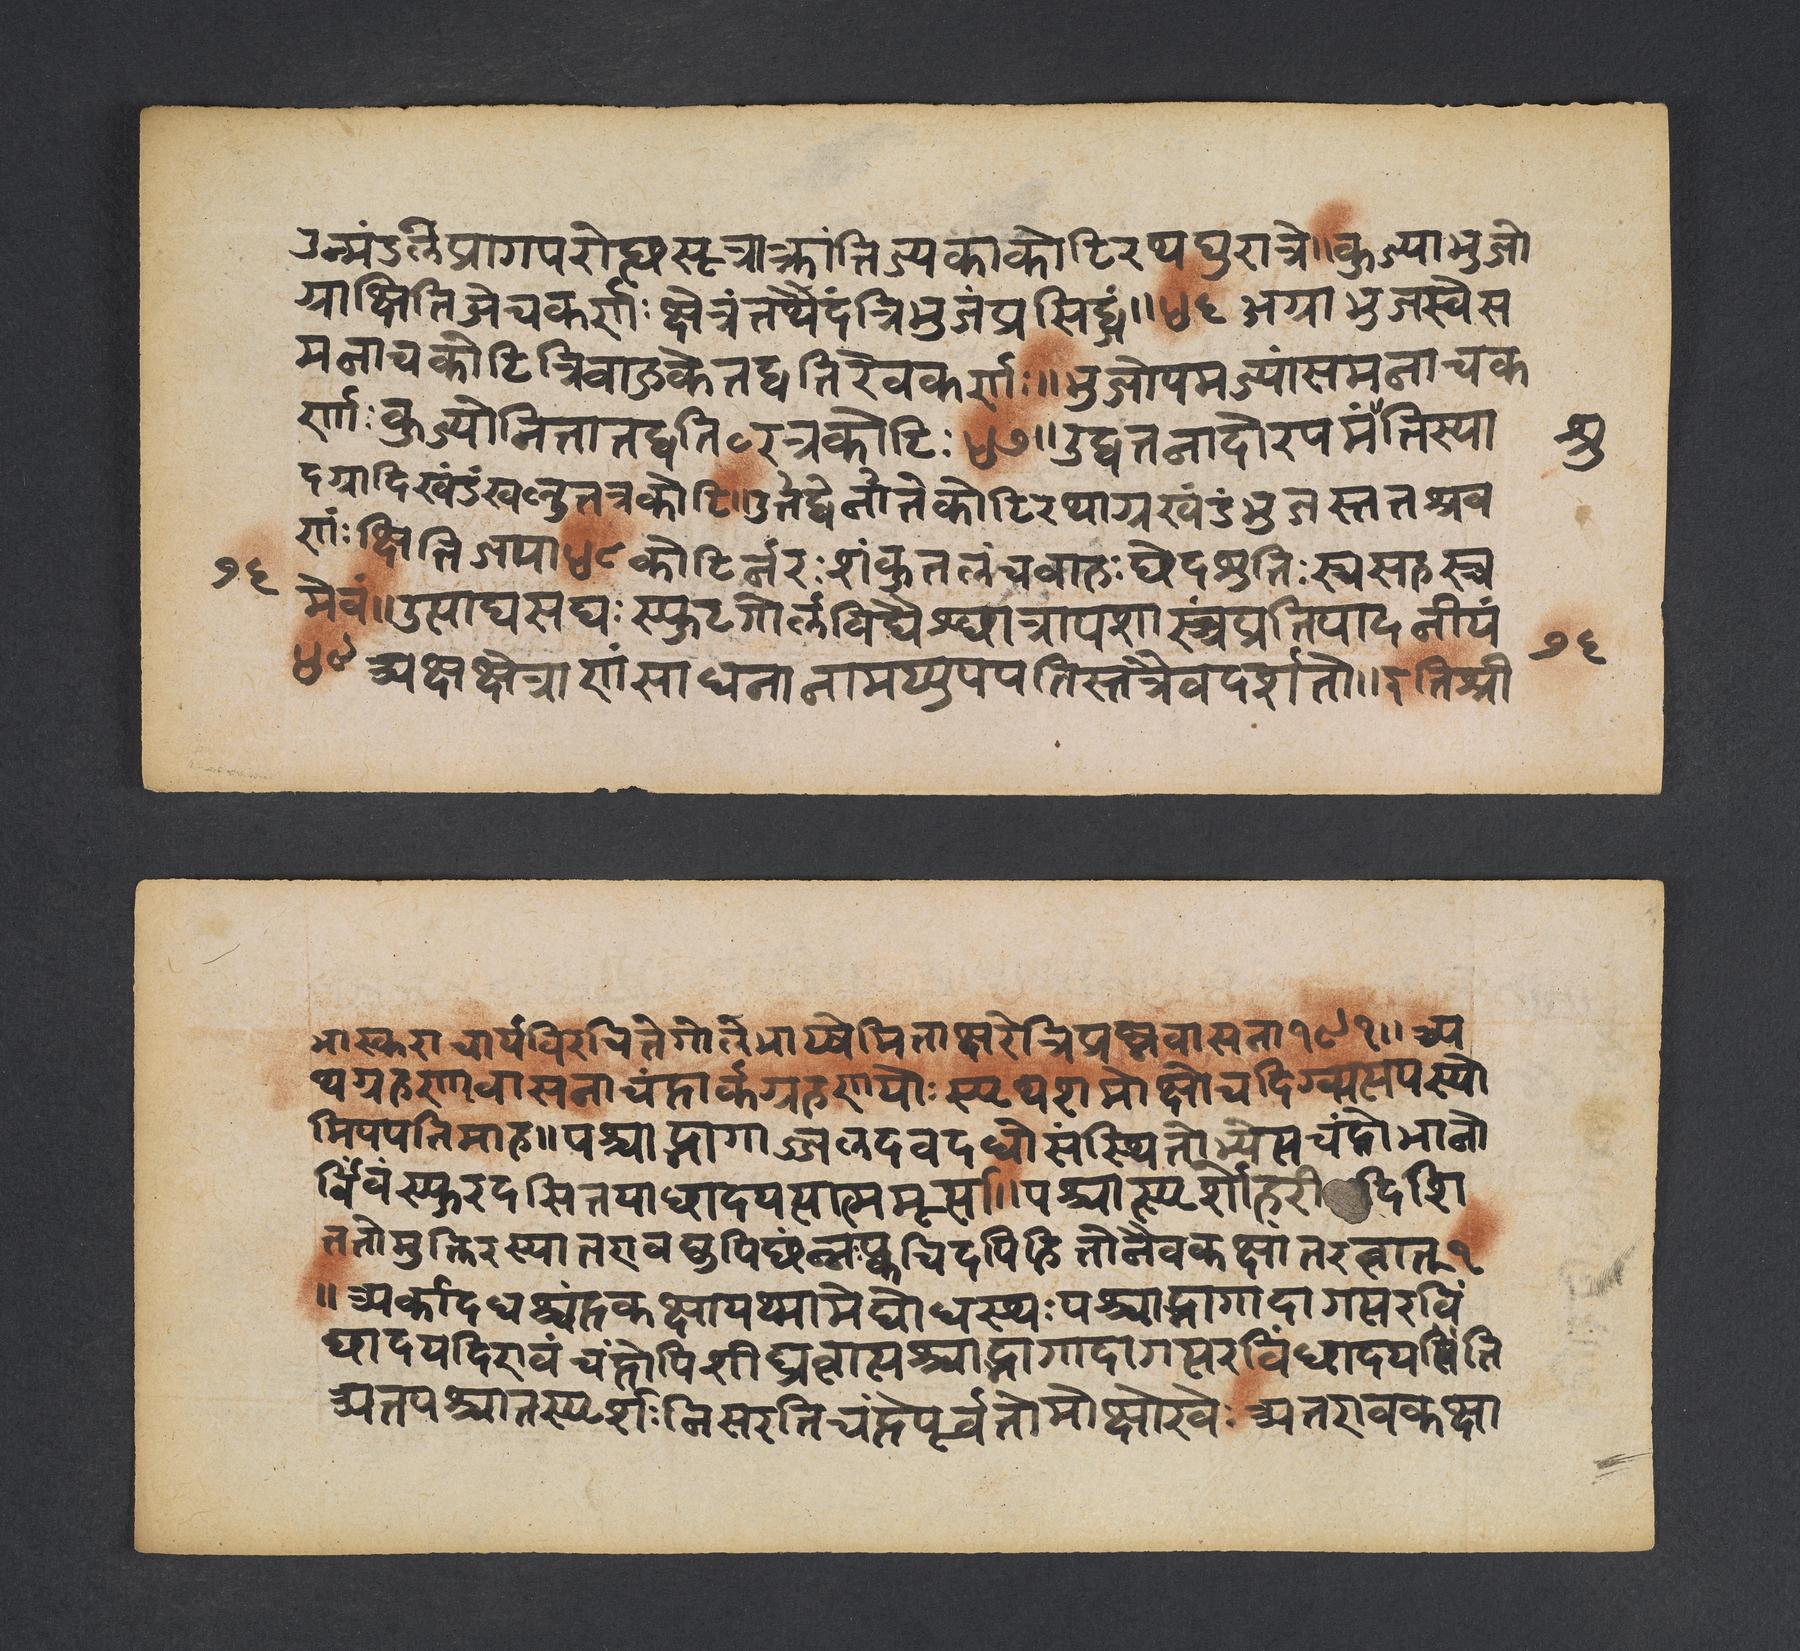 उन्मंडलेप्रागपरोत्थसूत्रात्क्रांतिज्यकाकोटिरथद्युरात्रे॥कुज्याभुजो
ग्राक्षितिजेचकर्णः क्षेत्रंतथैदंत्रिभुजंप्रसिद्धं॥४६ अग्राभुजस्वैस
मनाचकोटित्रिवाडकेतद्धृतिरेवकर्णः॥भुजोपमज्यांसमनाचक
र्णः कुज्योनितातद्धृतिरत्रकोटिः ४७॥उद्धृतनादोरपमंतिस्या
दग्रादिखंडंखलुतत्रकोटि॥उद्धृतनातेकोटिरथाग्रखंडंभुजस्ततश्रव
णः क्षितिजपा४८ कोटिर्नरः शंकुतलंचबाहुः छेदश्रुतिः स्त्र्यसहस्त्र
मेवं॥उत्पाद्यसद्यः स्फुटगोलविद्यैश्छात्रापशास्त्रंप्रतिपादनीयं
४९ अक्षक्षेत्राणांसाधनानामप्युपपतिस्तत्रैवदर्शितो॥इतिश्री
शु
१६
१६
भास्कराचार्यविरचितेगोलेभाष्येमिताक्षरेत्रिप्रष्नवासना१९१॥अ
थग्रहणवासनाचंद्रार्कग्रहणयोः स्पर्थशमोक्षोचदिग्व्यत्ययस्यो
मिपपतिमाह॥पश्चाद्भागाज्जलदवदधोसंस्थितोभ्येत्यचंद्रोभानो
र्बिंबंस्फुरदसितयाछादयत्यात्ममूर्त्या॥पश्चात्स्पर्शोहरी दिशि
ततोमुक्तिरस्यातएवछुपिछंन्नःक्वचिदपिहितोनैवकक्षांतरत्वात्१
॥अर्कादधश्चंद्रकक्षायथामेघोधस्थः पश्चाद्भागादागत्यरविं
छादयदिएवंचंद्रोपिशीघ्रत्वात्पश्चाद्भागादागत्यरविंछादयतिति
अतपश्चातस्पर्शः निसरतिचंद्रेपूर्वतोमोक्षोरवेः अतएवकक्षा